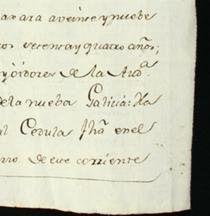 a veinte y nuebe
setenta y quatro años;
y oidores de la Auda.
de la nueba Galicia: Ha
Cedula fha en el
de este corriente